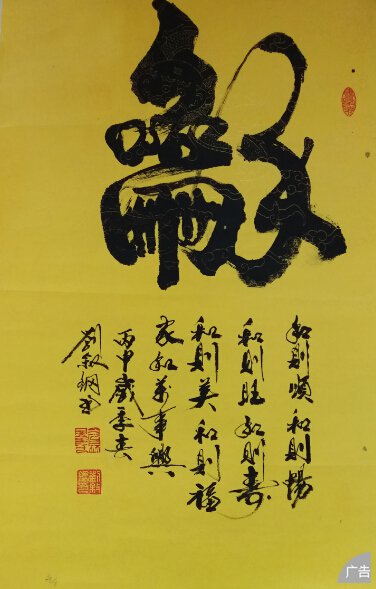 龢
和則順和則揚
和則旺和則壽
和則美和則福
家和萬事興
丙申歲季春
劉叙鋼書
广告